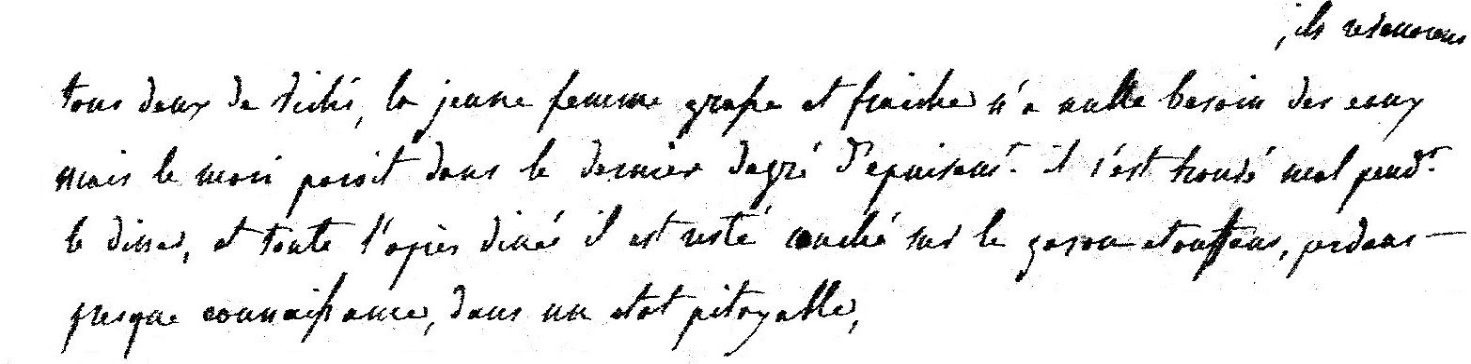 ; ils retournens
tous deux de vichi, la jeune femme grasse et fraiche n'a nulle besoin des eaux
mais le mari paroit dans le dernier degré d'epuisemt. il s'est trouvé mal pendt.
le diner, et toute l'après dinée il est resté couché sur le gason etouffans, perdans
presque connaissance, dans un etat pitoyable,